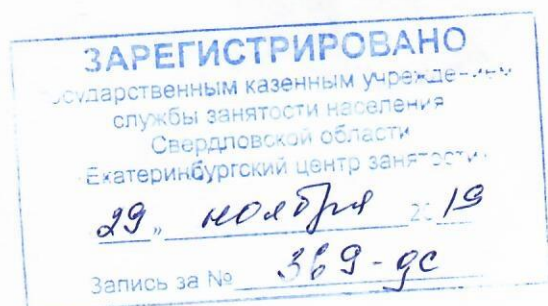 ЗАРЕГИСТРИРОВАНО
государственным казенным учреждением
службы занятости населения
Свердловской области
«Екатеринбургский центр занятости»
"29" ноября 2019
Запись за № 369-дс